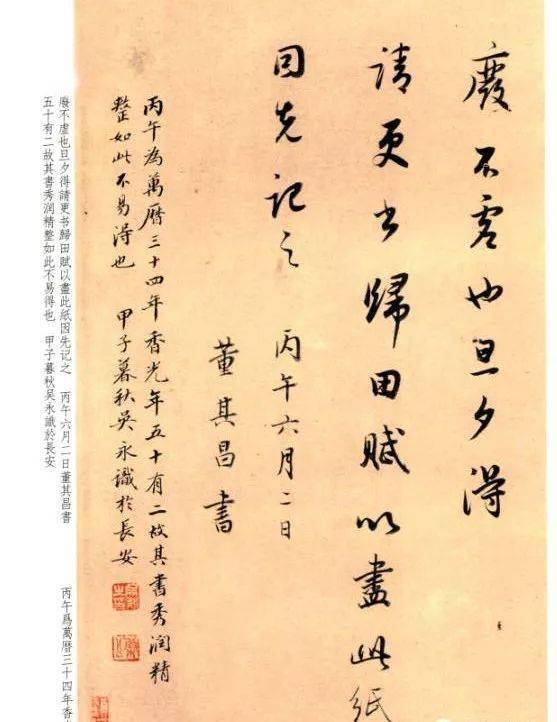 廢不虛也旦夕得
請更書歸田賦以盡此紙
因先記之 丙午六月二日
董其昌書
丙午為萬曆三十四年香光年五十有二故其書秀潤精
整如此不易得也 甲子暮秋吳永識於長安
廢不虛也旦夕得請更书歸田賦以盡此紙因先记之 丙午六月二日董其昌書
丙午爲萬曆三十四年香
五十有二故其書秀润精整如此不易得也 甲子暮秋吴永識於長安